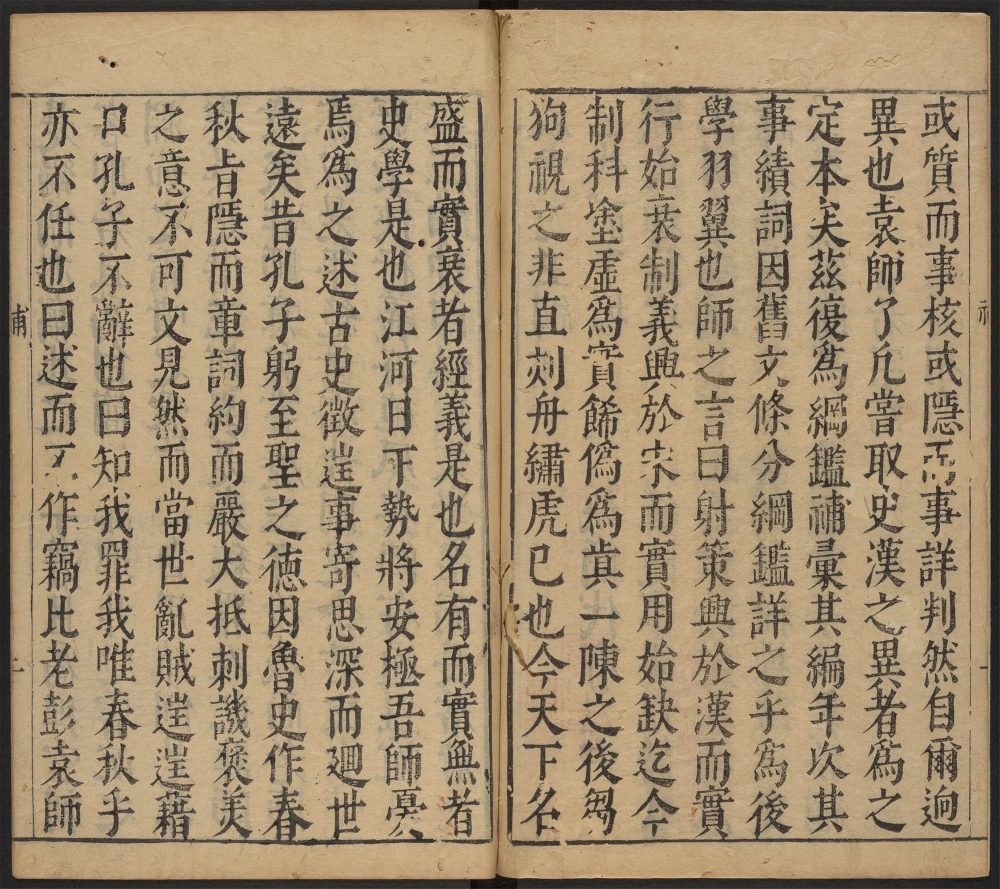 或質而事核或隱而事詳判然自爾迥
異也袁師了凡嘗取史漢之異者爲之
定本矣茲復爲綱鑑補彙其編年次其
事績詞因舊文條分綱鑑詳之乎爲後
學羽翼也師之言曰射策興於漢而實
行始衰制義興於宋而實用始缺迄今
制科塗虛爲實餙僞爲眞一陳之後芻
狗視之非直刻舟繡虎已也今天下名
盛而實衰者經義是也名有而實無者
史學是也江河日下勢將安極吾師憂
焉爲之述古史徵遑事寄思深而廻世
遠矣昔孔子躬至聖之德因魯史作春
秋旨隱而章詞約而嚴大抵刺譏褒美
之意不可文見然而當世亂賊遑遑藉
口孔子不辭也曰知我罪我唯春秋乎
亦不任也曰述而不作竊比老彭袁師
補